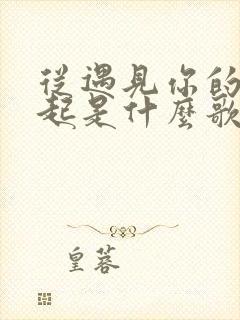 從遇見你的
起是什麼歌
皇蓉